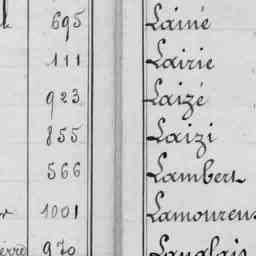 695 Lainé
111 Lairie
923 Laizé
855 Laizi
566 Lambert
1001 Lamoureus
970 Langlais